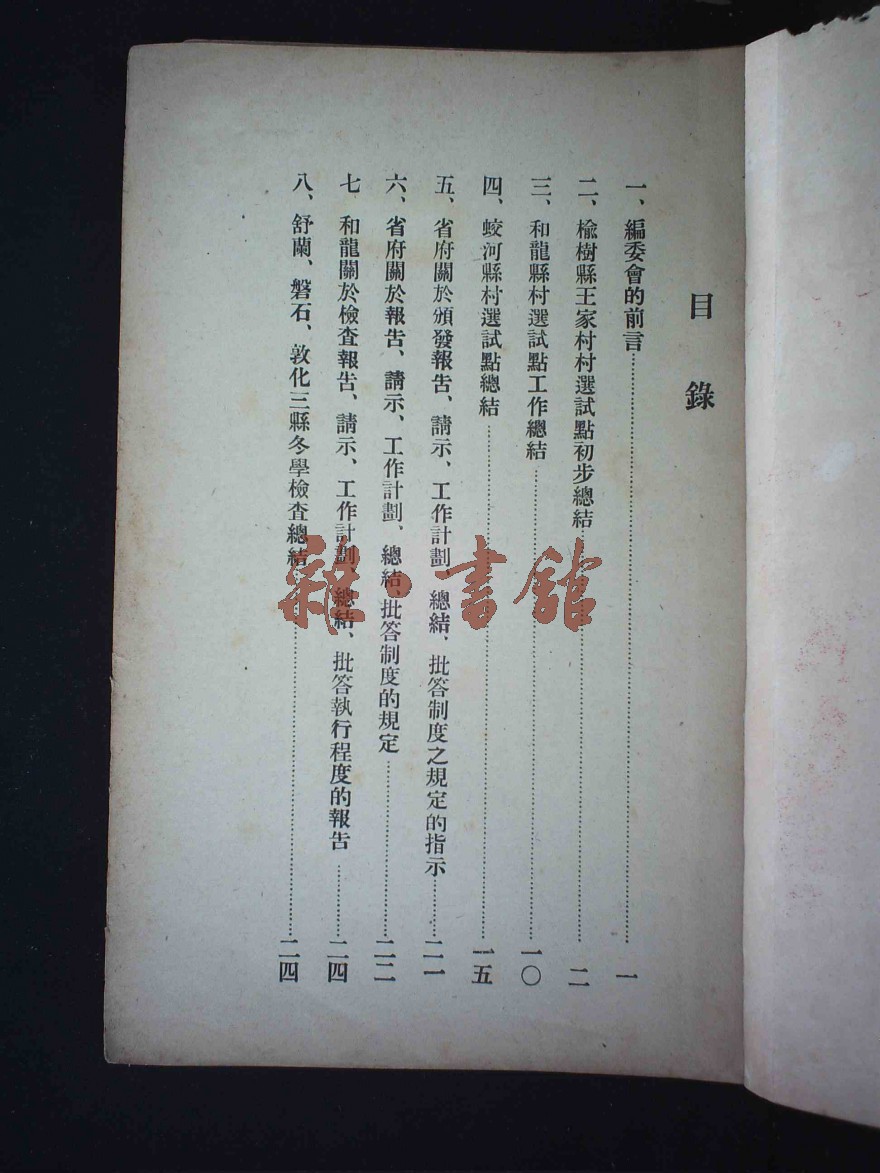 目錄
一、編委會的前言……一
二、榆樹縣王家村村選試點初步總結……二
三、和龍縣村選試點工作總結……一〇
四、蛟河縣村選試點總結……一五
五、省府關於頒發報告、請示、工作計劃、總結、批答制度之規定的指示……二一
六、省府關於報告、請示、工作計劃、總結、批答制度的規定……二二
七 和龍關於檢查報告、請示、工作計劃、總結、批答執行程度的報告……二四
八、舒蘭、磐石、敦化三縣冬學檢查總結……二四
雜·書館